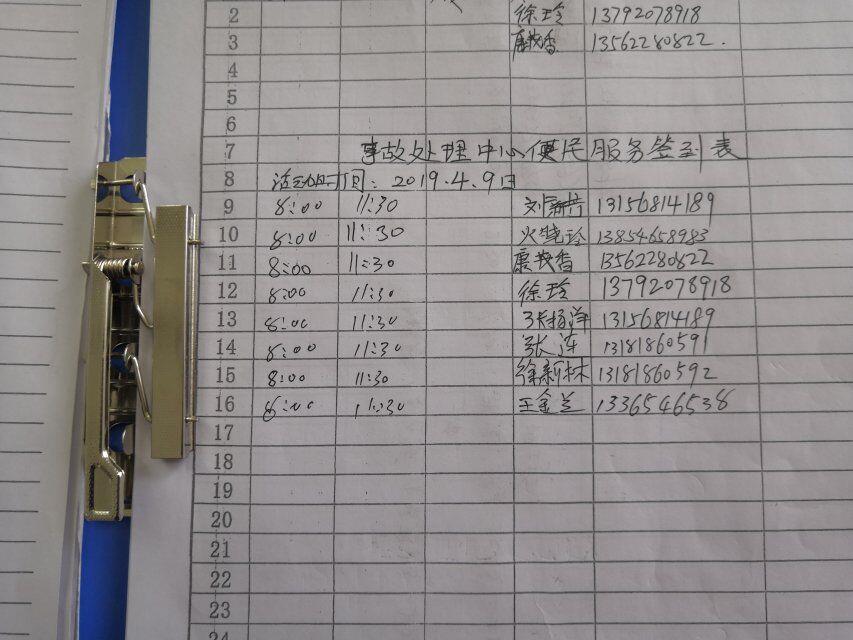 2 徐玲 13792078918
3 康我香 13562280822.
4
5
6
7 事故处理中心便民服务签到表
8 活动时间：2019.4.9日
9 8:00 11:30 刘 13156814189
10 8:00 11:30 火晓玲 13854658983
11 8:00 11:30 康我香 13562280822
12 8:00 11:30 徐玲 13792078918
13 8:00 11:30 张杨洋 13156814189
14 8:00 11:30 张涛 13181860591
15 8:00 11:30 徐新林 13181860592
16 8:00 11:30 王金兰 1336546538
17
18
19
20
21
22
23
24